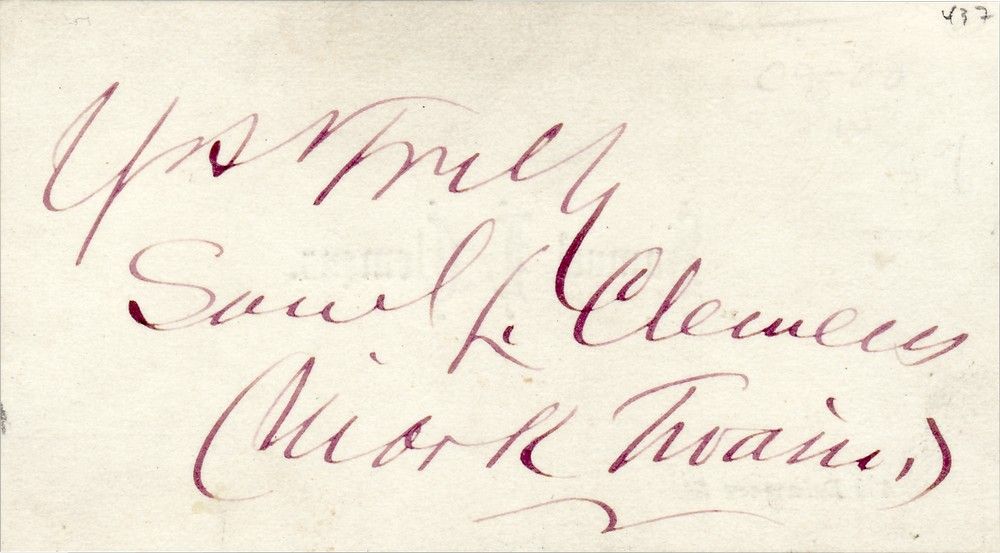 437
Yrs Truly
Saml L. Clemens
(Mark Twain.)